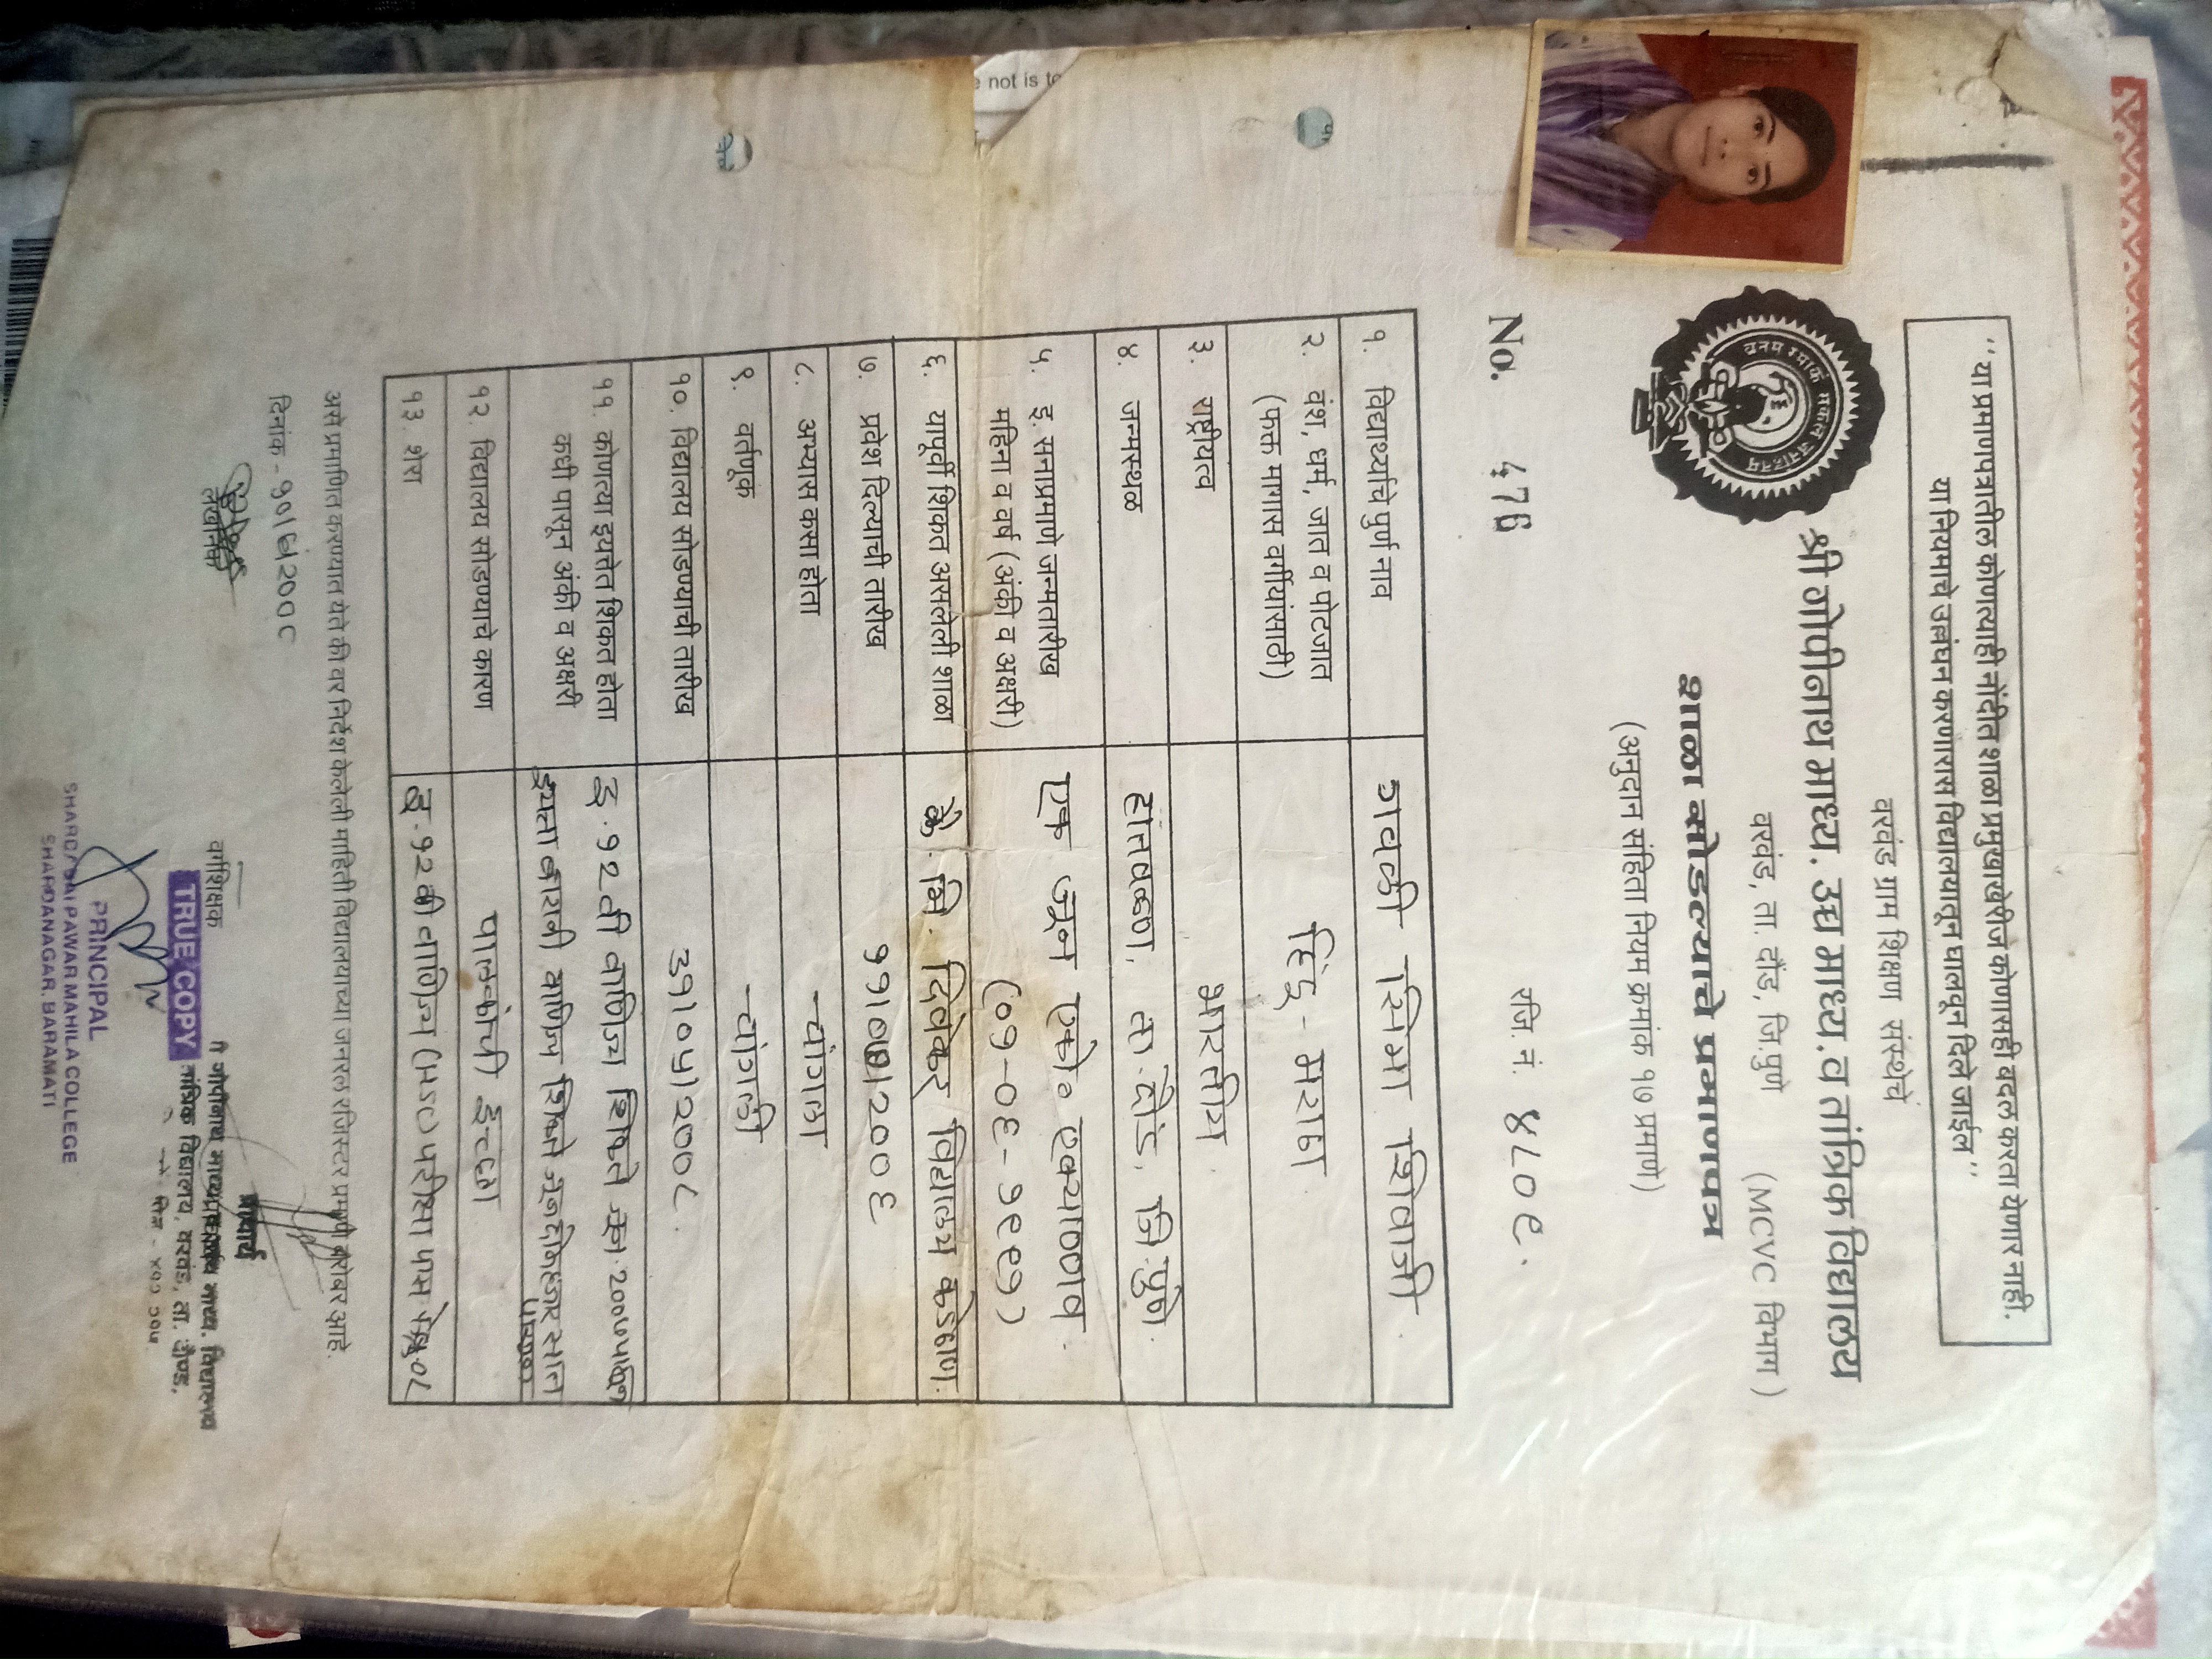 "या प्रमाणपत्रातील कोणत्याही नोंदीत शाळा प्रमुखाखेरीज कोणासही बदल करता येणार नाही.
या नियमाचे उल्लंघन करणारास विद्यालयातून घालवून दिले जाईल"
वरवंड ग्राम शिक्षण संस्थेचे
श्री गोपीनाथ माध्य. उच्च माध्य. व तांत्रिक विद्यालय
वरवंड, ता. दौंड, जि.पुणे (MCVC विभाग)
शाळा सोडल्याचे प्रमाणपत्र
(अनुदान संहिता नियम क्रमांक १७ प्रमाणे)
No. 476 रजि. नं. ४८०९.
१. विद्यार्थ्याचे पुर्ण नाव गवळी रेश्मा शिवाजी
२. वंश, धर्म, जात व पोटजात हिंदू - मराठा
(फक्त मागास वर्गीयांसाठी)
३. राष्ट्रीयत्व भारतीय
४. जन्मस्थळ हातवळण, ता. दौंड, जि.पुणे.
५. इ. सनाप्रमाणे जन्मतारीख एक जून एकोण एक्याण्णव
महिना व वर्ष (अंकी व अक्षरी) (०१-०६-१९९१)
६. यापूर्वी शिकत असलेली शाळा विद्यालय कडेठाण.
७. प्रवेश दिल्याची तारीख ११/०७/२००६
८. अभ्यास कसा होता चांगला
९. वर्तणूक चांगली
१०. विद्यालय सोडण्याची तारीख ३१/०५/२००८
११. कोणत्या इयत्तेत शिकत होता इ. १२ वी वाणिज्य
कधी पासून अंकी व अक्षरी
१२. विद्यालय सोडण्याचे कारण पालकांची इच्छा
१३. शेरा इ. १२ वी वाणिज्य (HSC) परीक्षा पास
असे प्रमाणित करण्यात येते की वर निर्देश केलेली माहिती विद्यालयाच्या जनरल रजिस्टर प्रमाणे बरोबर आहे.
दिनांक - १०/६/२००८
लेखनिक
वर्गशिक्षक
प्राचार्य
TRUE COPY
तांत्रिक विद्यालय, वरवंड, ता. दौण्ड,
PRINCIPAL
SHARDABAI PAWAR MAHILA COLLEGE
SHARDANAGAR. BARAMATI
e not is to